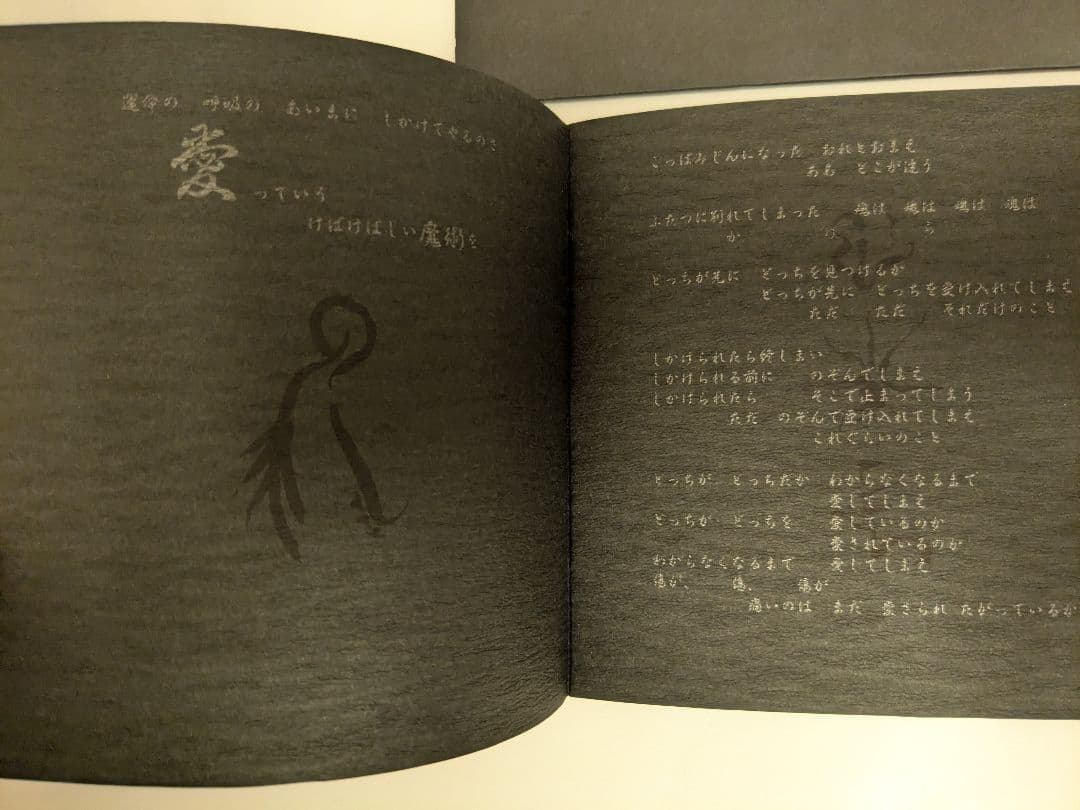 運命の 呼吸の あいまに しかけてやるのさ
愛っていう
けばけばしい魔術を
こっぱみじんになった おれとおまえ
ああ どこが違う
ふたつに別れてしまった 魂は 魂は 魂は 魂は
か ら
どっちが先に どっちを見つけるか
どっちが先に どっちを受け入れてしまえ
ただ ただ それだけのこと
しかけられたら終しまい
しかけられる前に のぞんでしまえ
しかけられたら そこで止まってしまう
ただ のぞんで受け入れてしまえ
これぐらいのこと
どっちが どっちだか わからなくなるまで
愛してしまえ
どっちが どっちを 愛しているのか
愛されているのか
わからなくなるまで 愛してしまえ
傷が、 傷、 傷が
痛いのは まだ 愛されたがっているか